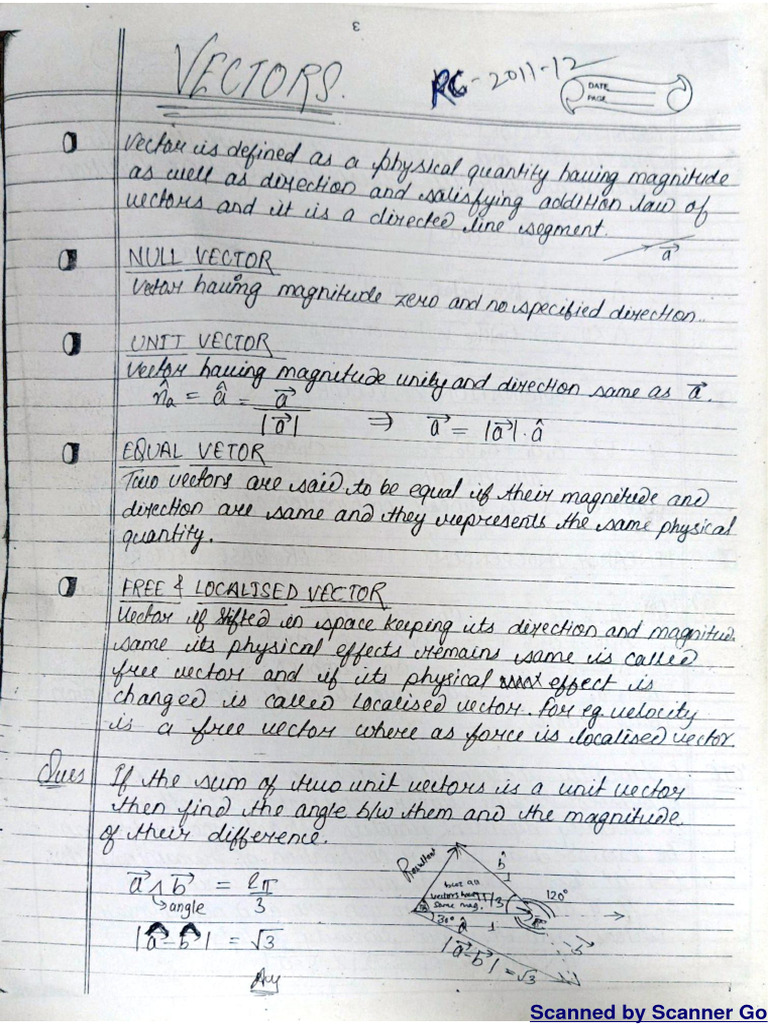 3
VECTORS.
RC-2011-12
DATE
PAGE
Vector is defined as a physical quantity having magnitude
as well as direction and satisfying addition law of
vectors and it is a directed line segment.
a⃗
NULL VECTOR
Vector having magnitude zero and no specified direction..
UNIT VECTOR
Vector having magnitude unity and direction same as a⃗.
n̂ₐ = â = a⃗ / |a⃗| ⇒ a⃗ = |a⃗|·â
EQUAL VETOR
Two vectors are said to be equal if their magnitude and
direction are same and they represents the same physical
quantity.
FREE & LOCALISED VECTOR
Vector if shifted in space keeping its direction and magnitud.
same its physical effects remains same is called
free vector and if its physical effect is
changed is called localised vector. For eg. velocity
is a free vector where as force is localised vector.
Ques If the sum of two unit vectors is a unit vector
then find the angle b/w them and the magnitude
of their difference.
a⃗ ∧ b⃗ = 2π/3
↳ angle
|a⃗-b⃗| = √3
Resultant
b̂
1
vectors have
same mag.
π/3
120°
30°
â
1
-b⃗
|a⃗-b⃗| = √3
Scanned by Scanner Go